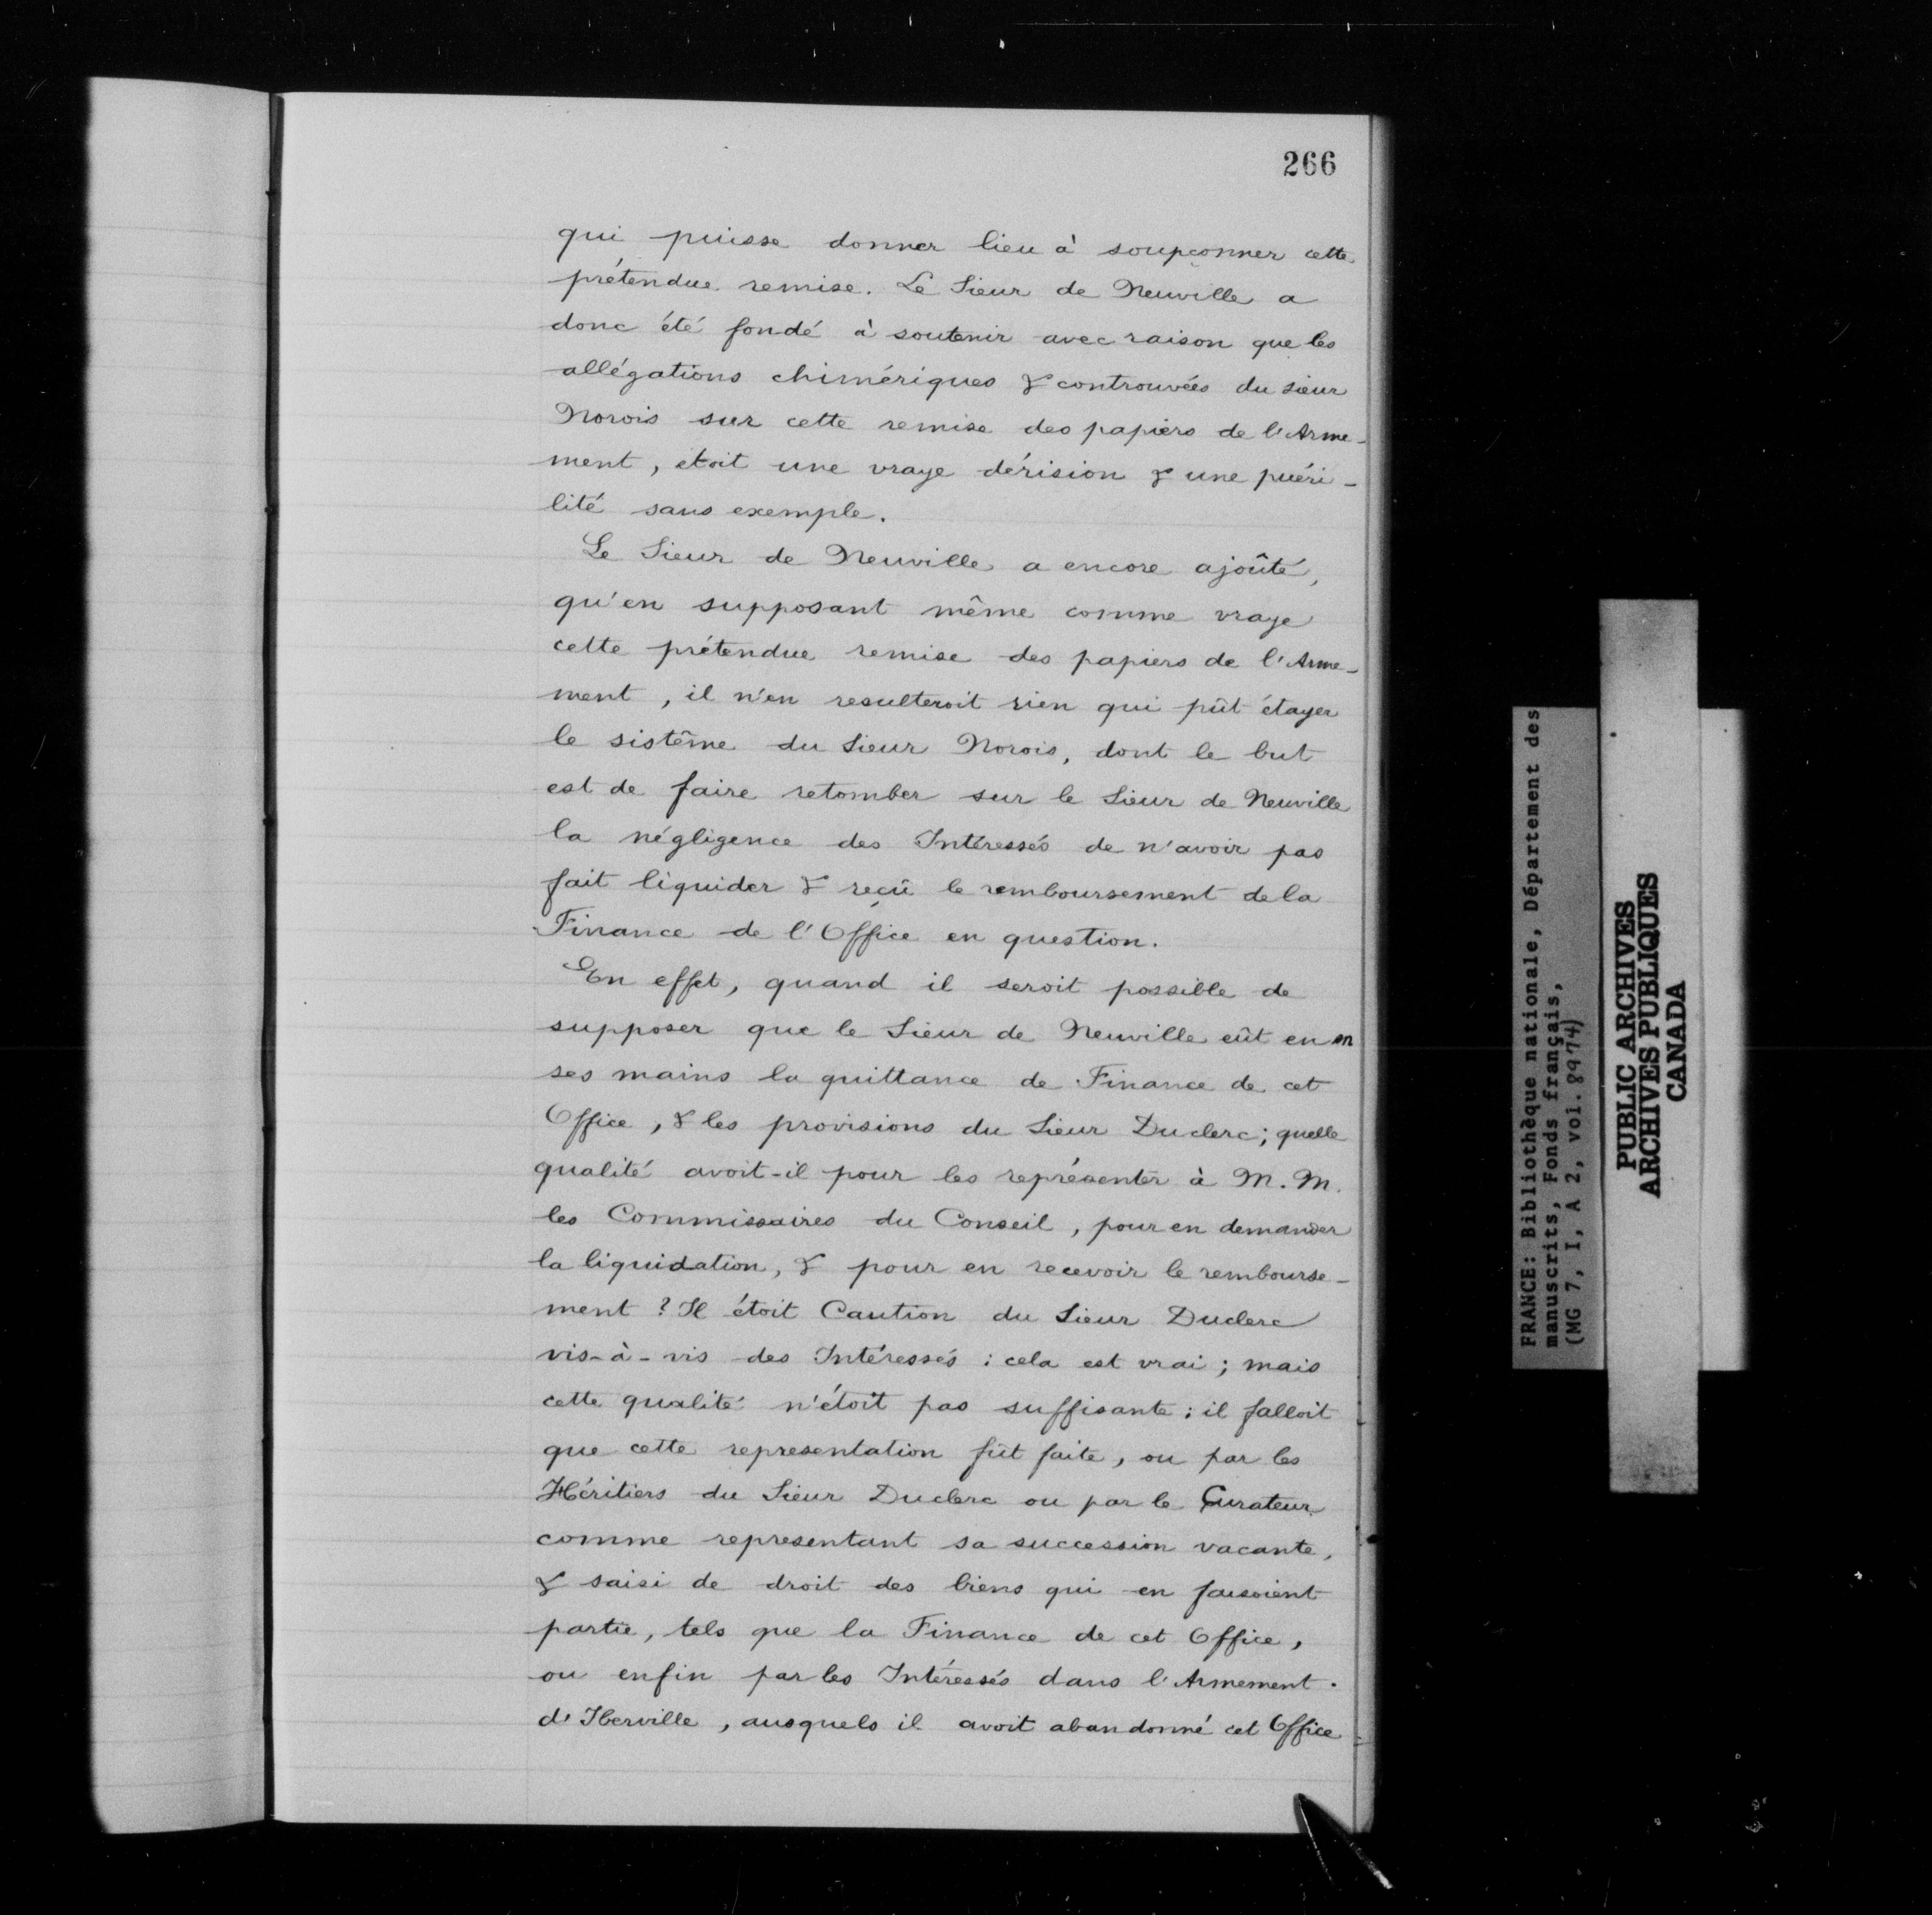 266
qui puisse donner lieu à soupçonner cette
prétendue remise. Le Sieur de Neuville a
donc été fondé à soutenir avec raison que les
allégations chimériques & controuvées du sieur
Norois sur cette remise des papiers de l'Arme-
ment, étoit une vraye dérision & une puéri-
lité sans exemple.
Le Sieur de Neuville a encore ajoûté,
qu'en supposant même comme vraye
cette prétendue remise des papiers de l'Arme-
ment, il n'en resulteroit rien qui pût étayer
le sistême du Sieur Norois, dont le but
est de faire retomber sur le Sieur de Neuville
la négligence des Intéressés de n'avoir pas
fait liquider & reçû le remboursement de la
Finance de l'Office en question.
En effet, quand il seroit possible de
supposer que le Sieur de Neuville eût eu en
ses mains la quittance de Finance de cet
Office, & les provisions du Sieur Duclerc; quelle
qualité avoit-il pour les représenter à M. M.
les Commissaires du Conseil, pour en demander
la liquidation, & pour en recevoir le rembourse-
ment? Il étoit Caution du Sieur Duclerc
vis-à-vis des Intéressés: cela est vrai; mais
cette qualité n'étoit pas suffisante: il falloit
que cette representation fût faite, ou par les
Héritiers du Sieur Duclerc ou par le Curateur
comme representant sa succession vacante,
& saisi de droit des biens qui en faisoient
partie, tels que la Finance de cet Office,
ou enfin par les Intéressés dans l'Armement.
d'Iberville, ausquels il avoit abandonné cet Office
FRANCE: Bibliothèque nationale, Département des
manuscrits, Fonds français,
(MG 7, I, A 2, vol. 8974)
PUBLIC ARCHIVES
ARCHIVES PUBLIQUES
CANADA